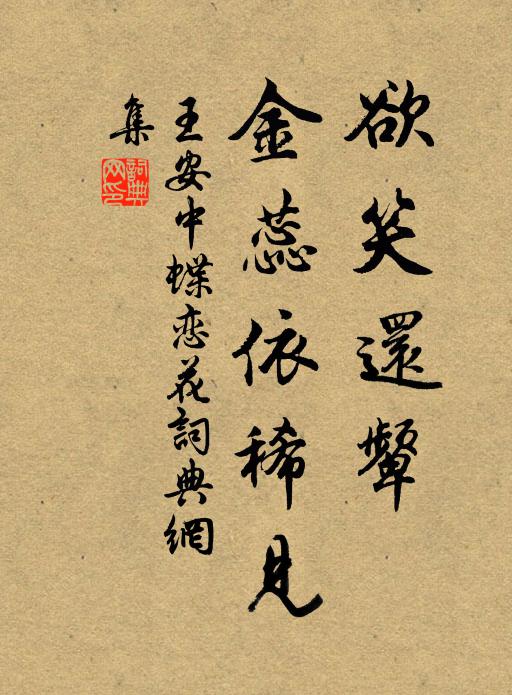 欲笑還顰
金蕊依稀見
王安中蝶恋花詞典網
集
詞典网印